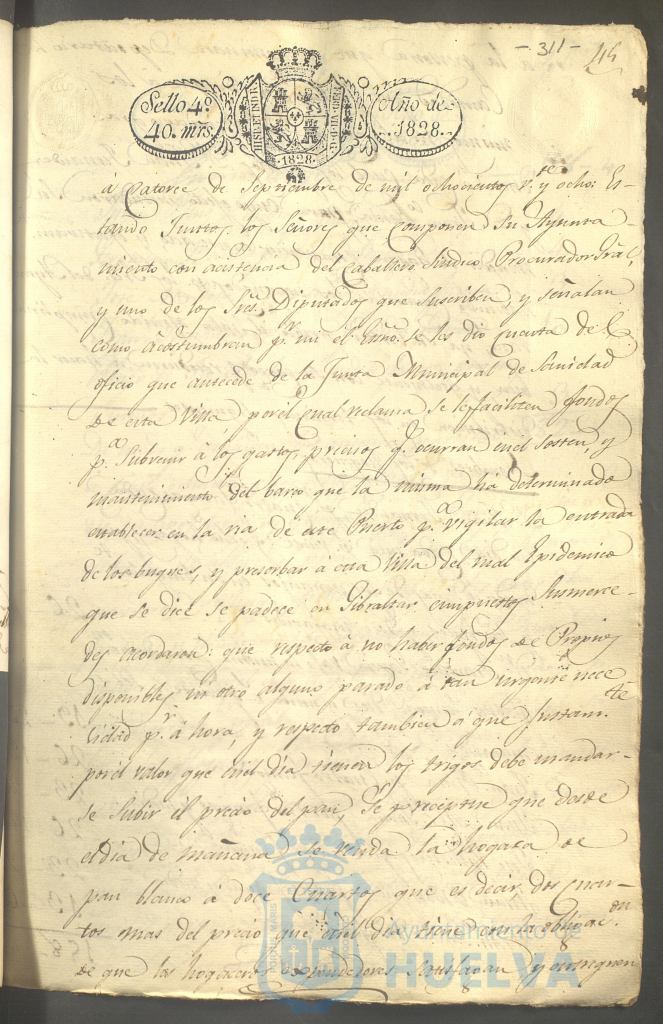 - 311 -
45
Sello 4.º
40. mrs.
HISP. ET IND. R.
1828.
Año de
1828.
á Catorce de Septiembre de mil ochocientos v.te y ocho: Es-
tando Juntos los Señores que componen su Ayunta-
miento con acistencia del Caballero Sindico Procurador Gral,
y uno de los Sres. Diputados que suscriben, y señalan
como acostumbran p.r mi el Esno. se les dio cuenta del
oficio que antecede de la Junta Municipal de Sanidad
de esta Villa, por el qual reclama se le faciliten fondos
p.a Subvenir á los gastos precisos q.e ocurran en el sosten, y
mantenimiento del barco que la misma há determinado
establecer en la ria de este Puerto p.a vigilar la entrada
de los buques, y preserbar á esta Villa del mal Epidemico
que se dice se padece en Gibraltar, é impuestos Susmerce-
des acordaron: que respecto á no haber fondos de Propios
disponibles ni otro alguno parado á tan urgente nece
cidad p.r áhora, y respecto tambien á que Justam.te
por el valor que en el dia tienen los trigos debe mandar-
se Subir el precio del pan, Se preceptue que desde
el dia de mañana se venda la hogaza de
pan blanco á doce Cuartos que es decir, dos Cuar-
tos mas del precio que en el dia tiene con la obligac.on
de que los hogaceros expendedores satisfagan y entreguen
Ayuntamiento de
HUELVA